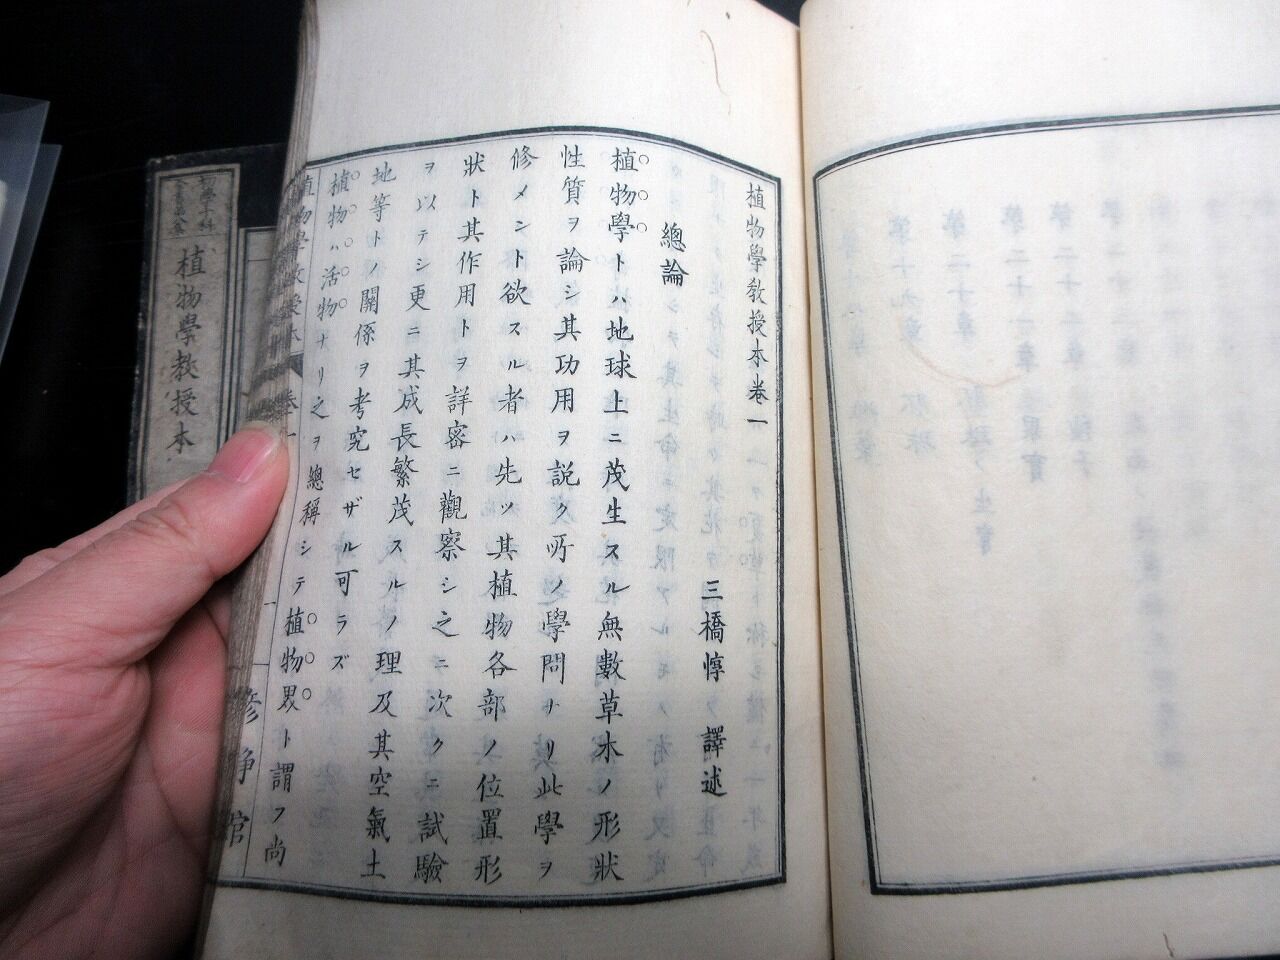 植物學教授本卷一
三橋惇 譯述
總論
植物學トハ地球上ニ茂生スル無數草木ノ形狀
性質ヲ論シ其功用ヲ説ク所ノ學問ナリ此學ヲ
修メント欲スル者ハ先ツ其植物各部ノ位置形
狀ト其作用トヲ詳密ニ觀察シ之ニ次クニ試驗
ヲ以テシ更ニ其成長繁茂スルノ理及其空氣土
地等トノ關係ヲ考究セザル可ラズ
植物ハ活物ナリ之ヲ總稱シテ植物界ト謂フ尚
植物學教授本 卷一
修靜館
植物學教授本